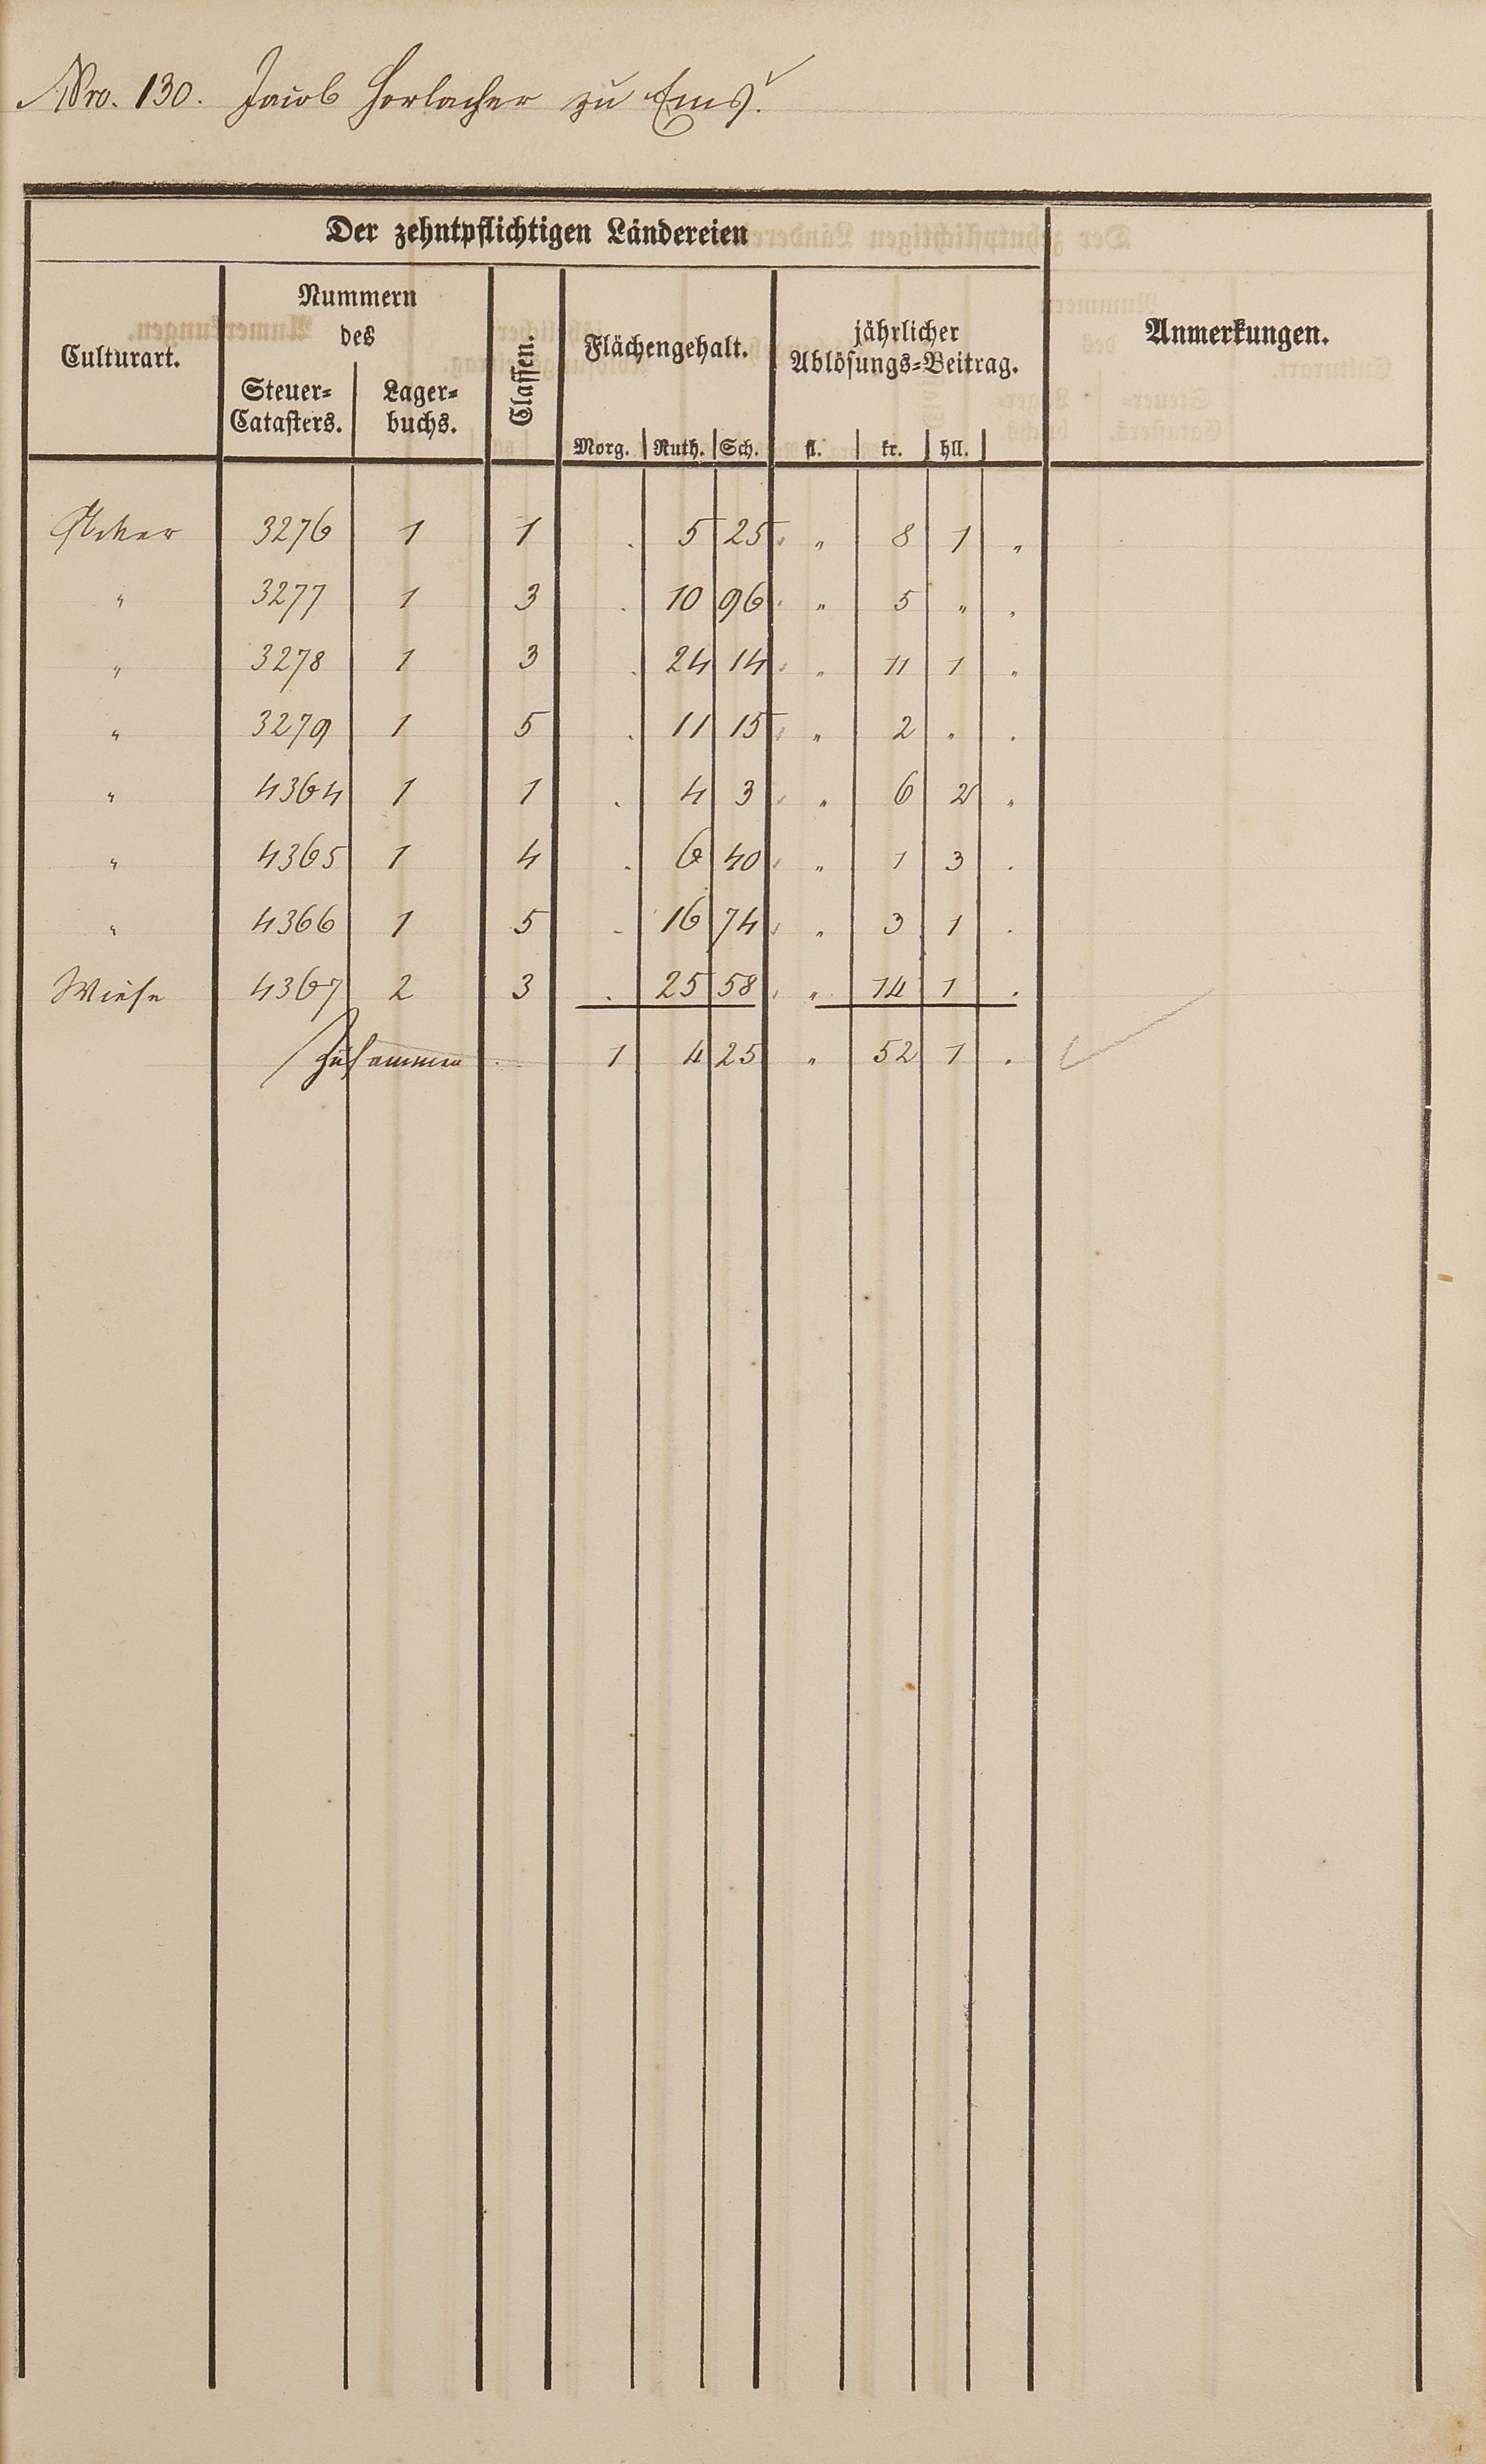 Nro. 130. Jacob Horlacher zu Ems.
Der zehntpflichtigen Ländereien
Culturart.
Nummern
des
Steuer-
Catasters.
Lager-
buchs.
Classen.
Flächengehalt.
Morg. Ruth. Sch.
jährlicher
Ablösungs-Beitrag.
fl. kr. hll.
Anmerkungen.
Acker 3276 1 1 . 5 25 „ 8 1 „
„ 3277 1 3 . 10 96 „ 5 „ „
„ 3278 1 3 . 24 14 „ 11 1 „
„ 3279 1 5 . 11 15 „ 2 „ .
„ 4364 1 1 . 4 3 „ 6 2 „
„ 4365 1 4 . 6 40 „ 1 3 .
„ 4366 1 5 . 16 74 „ 3 1 .
Wiese 4367 2 3 . 25 58 „ 14 1 .
Zusammen 1 4 25 „ 52 1 .